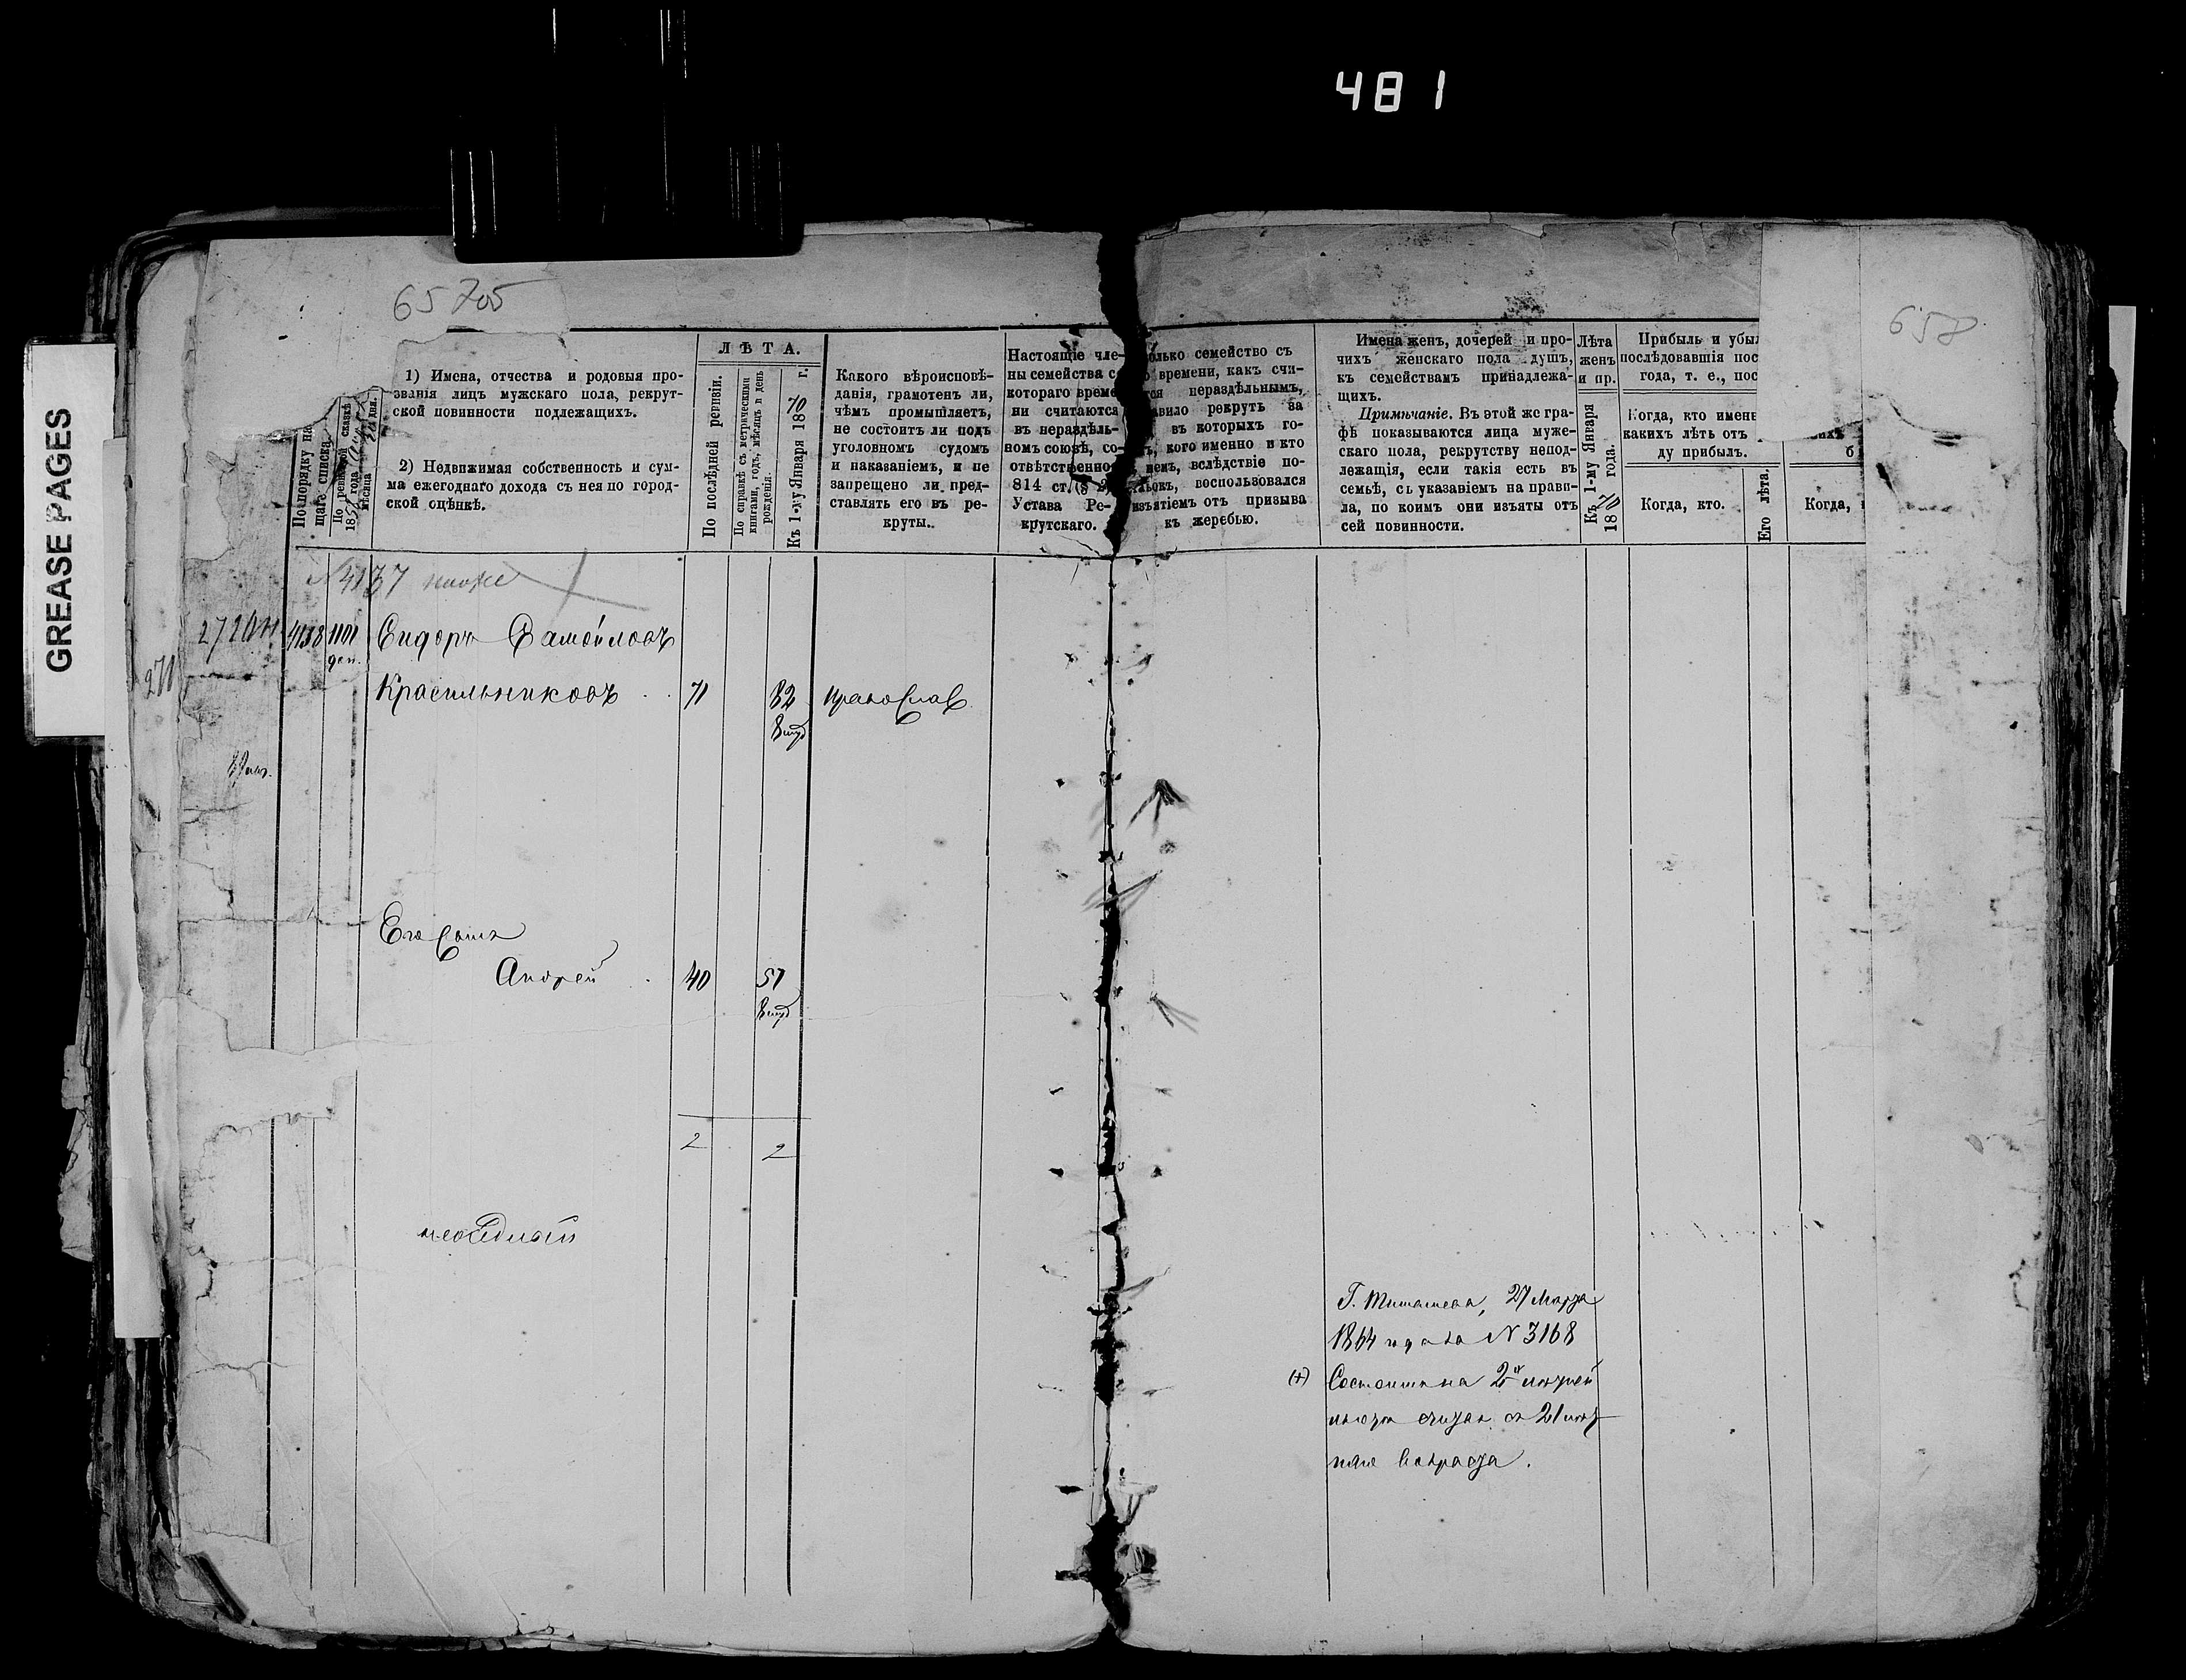 481
GREASE PAGES
65705
658
По порядку на-
щаго списка.
По ревизской сказкѣ
18 года
мѣсяца дня.
1) Имена, отчества и родовыя про-
званія лицъ мужскаго пола, рекрут-
ской повинности подлежащихъ.
2) Недвижимая собственность и сум-
ма ежегоднаго дохода съ нея по город-
ской оцѣнкѣ.
ЛѢТА.
По послѣдней ревизіи.
По справкѣ съ метрическими
книгами, годъ, мѣсяцъ и день
рожденія.
Къ 1-му Января 1870 г.
Какого вѣроисповѣ-
данія, грамотенъ ли,
чѣмъ промышляетъ,
не состоитъ ли подъ
уголовномъ судомъ
и наказаніемъ, и не
запрещено ли пред-
ставлять его въ ре-
круты.
Настоящіе чле-
ны семейства съ
котораго време
ни считаются
въ нераздѣль-
номъ союзѣ, со-
отвѣтственно
814 ст. (§ 2)
Устава Ре-
крутскаго.
олько семейство съ
времени, какъ счи-
ся нераздѣльнымъ,
авило рекрутъ за
въ которыхъ го-
ъ, кого именно и кто
нихъ, вслѣдствіе по-
, воспользовался
изъятіемъ отъ призыва
къ жеребью.
Имена женъ, дочерей и про-
чихъ женскаго пола душъ,
къ семействамъ принадлежа-
щихъ.
Примѣчаніе. Въ этой же гра-
фѣ показываются лица муже-
скаго пола, рекрутству непод-
лежащія, если такія есть въ
семьѣ, съ указаніемъ на прави-
ла, по коимъ они изъяты отъ
сей повинности.
Лѣта
женъ
и пр.
Къ 1-му Января
18 года.
Прибыль и убыл
послѣдовавшія пос
года, т. е., пос
Когда, кто именн
какихъ лѣтъ отъ
ду прибылъ.
Когда, кто.
Его лѣта.
Когда,
N 4137 ниже
272
4138 1101 Сидоръ Самойловъ
271
Красильниковъ . . 71 82 православ
Его сынъ
Андрей . 40 51
2 2
Г. 27 Марта
1864 года за N 3168
(+) Состоитъ на 2й
21
няго возраста.